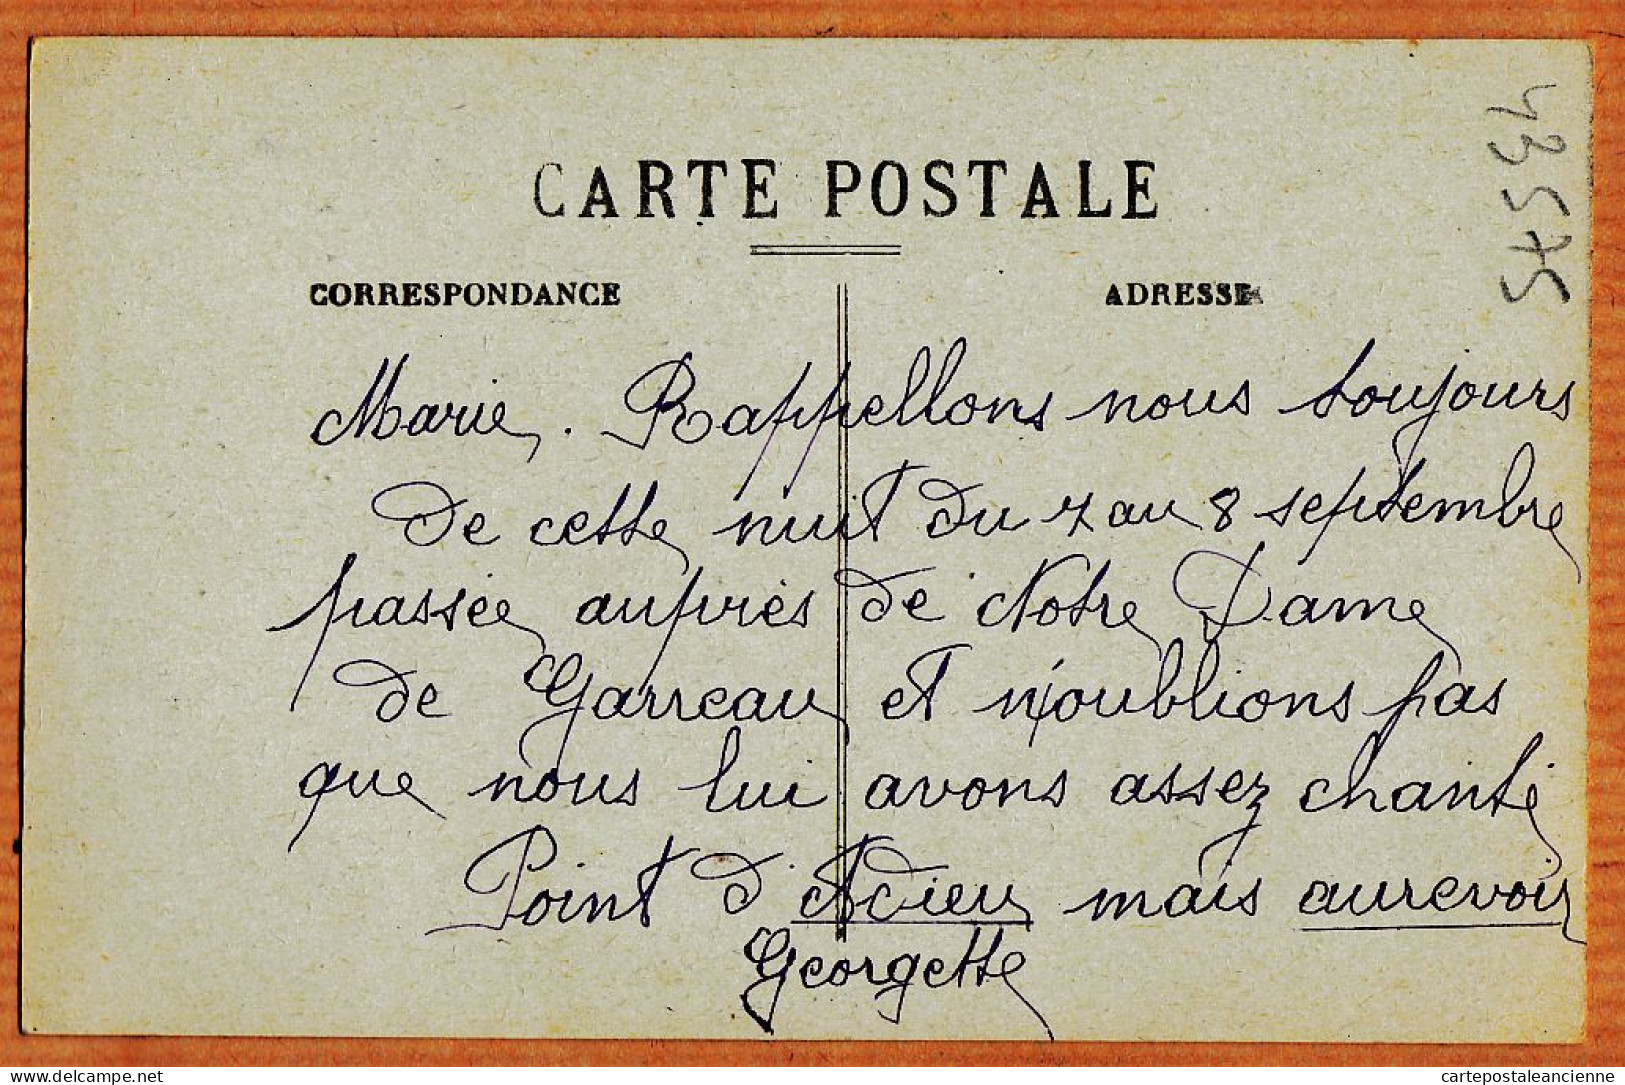 CARTE POSTALE
CORRESPONDANCE
ADRESSE
43575
Marie. Rappellons nous toujours
de cette nuit du 7 au 8 septembre
passée auprès de Notre Dame
de Garreau et n'oublions pas
que nous lui avons assez chanté
Point d'Adieu mais aurevoir
Georgette
delcampe.net
cartepostaleancienne